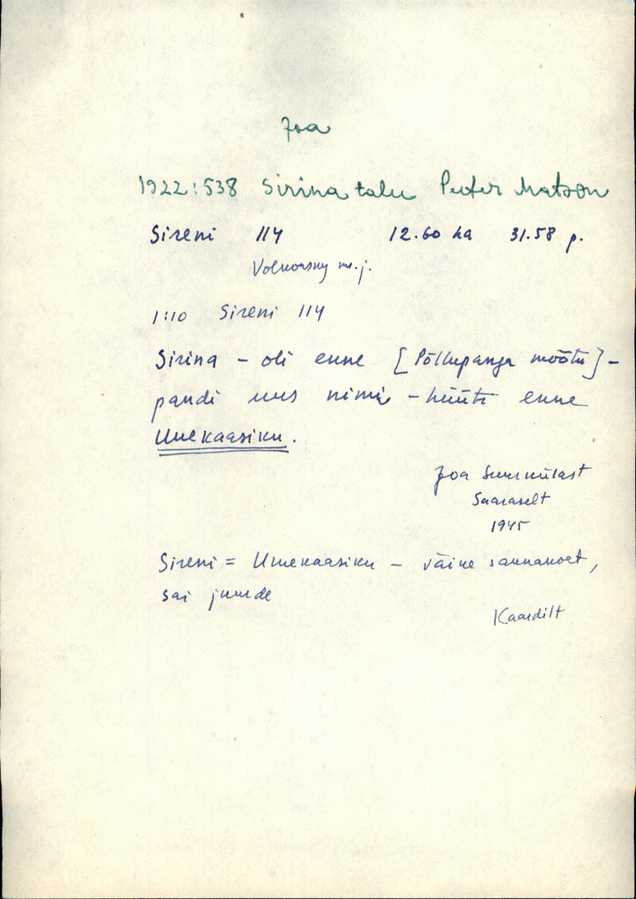 Joa
1922:538 Sirina talu Peeter Matson
Sireni 114 12.60 ha 31.58 p.
m. j.
1:10 Sireni 114
Sirina - oli enne [Põllupanga mõõtu] -
pandi uus nimi - hüüti enne
Uuekaasiku.
Joa Suurkülast
Saaraselt
1945
Sireni = Uuekaasiku - väike saunakoht,
sai juurde
Kaardilt